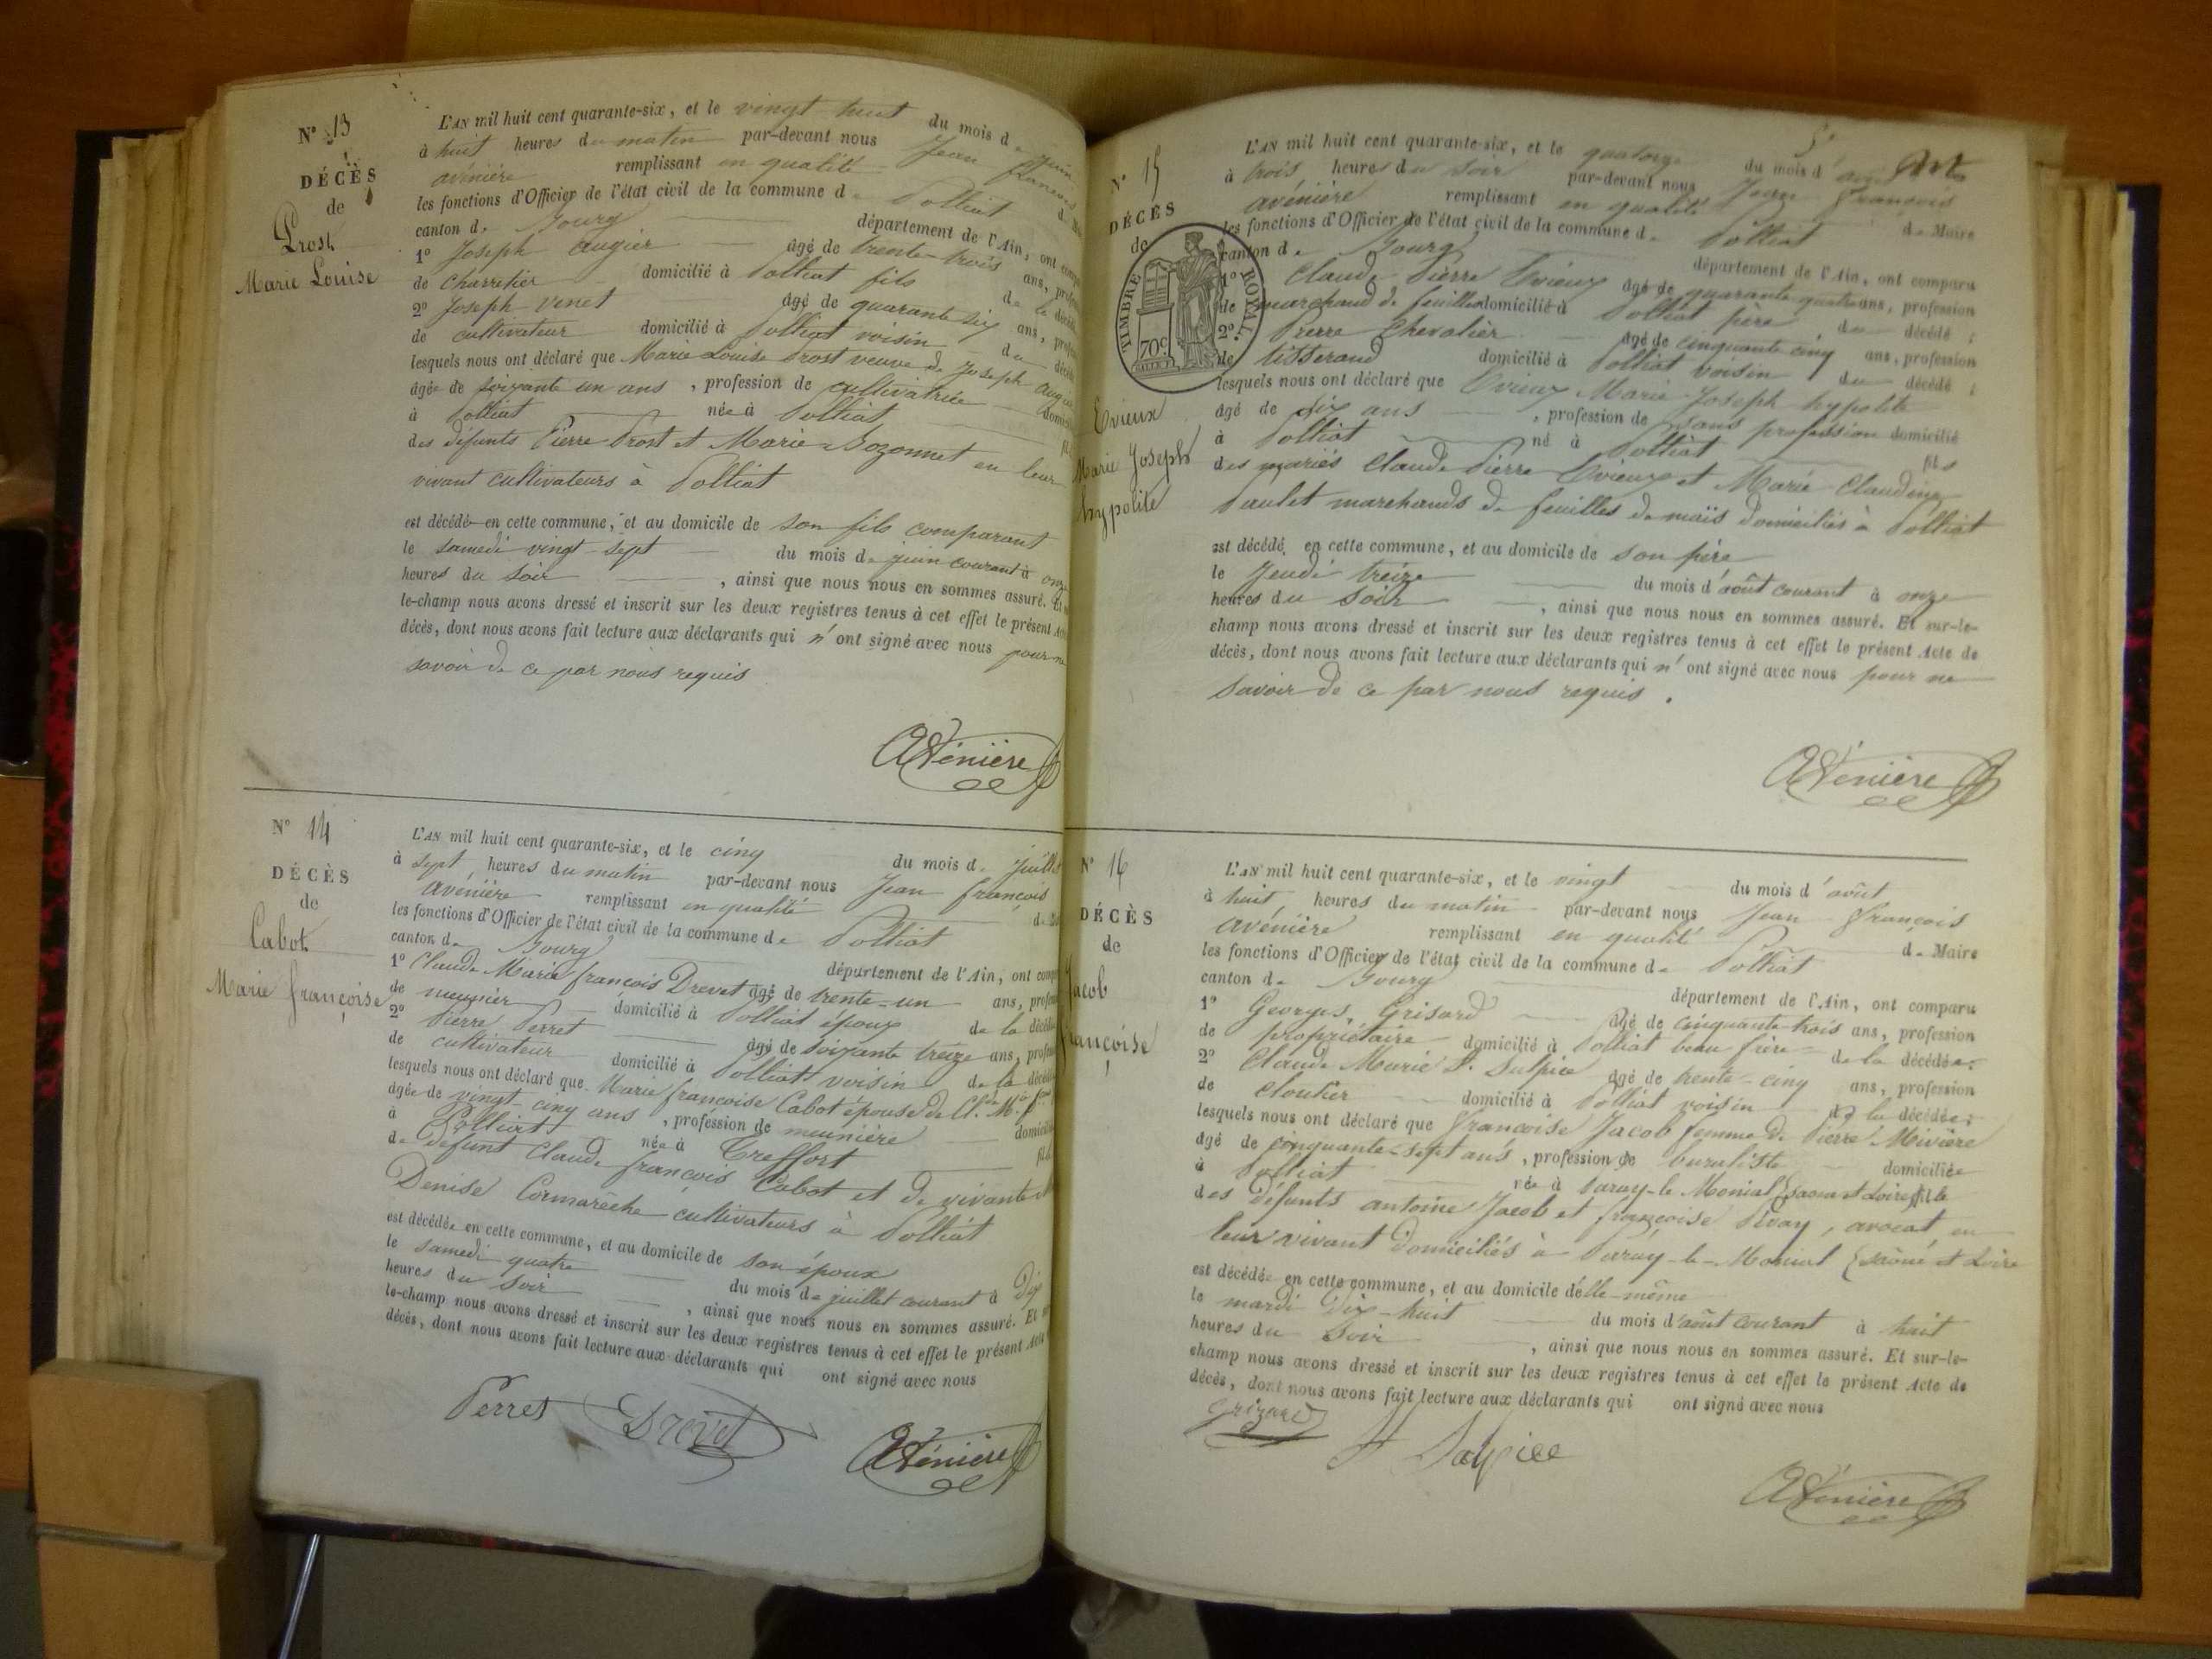 N° 13
DÉCÈS
de
Prost
Marie Louise
L'AN mil huit cent quarante-six, et le vingt huit du mois de juin
à huit heures du matin par-devant nous Jean françois
avénière remplissant en qualité de
les fonctions d'Officier de l'état civil de la commune de Polliat
canton de Bourg département de l'Ain, ont
1° Joseph augier âgé de trente-trois ans,
de charretier domicilié à Polliat fils de la
2° Joseph venet âgé de quarante six ans,
de cultivateur domicilié à Polliat voisin de
lesquels nous ont déclaré que Marie Louise Prost veuve de Joseph
âgée de soixante un ans, profession de cultivatrice
à Polliat née à Polliat
des défunts Pierre Prost et Marie Bozonnet en leur
vivant cultivateurs à Polliat
est décédé en cette commune, et au domicile de son fils comparant
le samedi vingt-sept du mois de juin courant à onze
heures du soir, ainsi que nous nous en sommes assuré. Et
le-champ nous avons dressé et inscrit sur les deux registres tenus à cet effet le présent
décès, dont nous avons fait lecture aux déclarants qui n'ont signé avec nous pour ne
savoir de ce par nous requis
Avénière
N° 14
DÉCÈS
de
Cabot
Marie françoise
L'AN mil huit cent quarante-six, et le cinq du mois de Juillet
à sept heures du matin par-devant nous Jean françois
avénière remplissant en qualité de
les fonctions d'Officier de l'état civil de la commune de Polliat
canton de Bourg département de l'Ain, ont
1° Claude Marie françois Drevet âgé de trente-un ans,
de meunier domicilié à Polliat époux de la
2° Pierre Perret âgé de soixante treize ans,
de cultivateur domicilié à Polliat voisin de la
lesquels nous ont déclaré que Marie françoise Cabot épouse de Cl. M.
âgée de vingt cinq ans, profession de meunière
à Polliat née à Treffort
de défunt Claude françois Cabot et de vivante
Denise Cormarèche cultivateurs à Polliat
est décédée en cette commune, et au domicile de son époux
le samedi quatre du mois de juillet courant à Dix
heures du soir, ainsi que nous nous en sommes assuré. Et
le-champ nous avons dressé et inscrit sur les deux registres tenus à cet effet le présent Acte
décès, dont nous avons fait lecture aux déclarants qui ont signé avec nous
Perret Drevet
Avénière
N° 15
DÉCÈS
de
TIMBRE ROYAL.
70c
Evieux
Marie Joseph
hypolite
L'AN mil huit cent quarante-six, et le quatorze du mois d'août
à trois heures du soir par-devant nous Jean François
avénière remplissant en qualité de Maire
les fonctions d'Officier de l'état civil de la commune de Polliat
canton de Bourg département de l'Ain, ont comparu
1° Claude Pierre Evieux âgé de quarante quatre ans, profession
de marchand de feuilles domicilié à Polliat père du décédé ;
2° Pierre Chevalier âgé de cinquante cinq ans, profession
de tisserand domicilié à Polliat voisin du décédé ;
lesquels nous ont déclaré que Evieux Marie Joseph hypolite
âgé de six ans, profession de sans profession domicilié
à Polliat né à Polliat fils
des mariés Claude Pierre Evieux et Marie Claudine
Paulet marchands de feuilles de maïs domiciliés à Polliat
est décédé en cette commune, et au domicile de son père
le Jeudi treize du mois d'août courant à onze
heures du soir, ainsi que nous nous en sommes assuré. Et sur-le-
champ nous avons dressé et inscrit sur les deux registres tenus à cet effet le présent Acte de
décès, dont nous avons fait lecture aux déclarants qui n'ont signé avec nous pour ne
savoir de ce par nous requis.
Avénière
N° 16
DÉCÈS
de
Jacob
françoise
L'AN mil huit cent quarante-six, et le vingt du mois d'août
à huit heures du matin par-devant nous Jean François
avénière remplissant en qualité de Maire
les fonctions d'Officier de l'état civil de la commune de Polliat
canton de Bourg département de l'Ain, ont comparu
1° Georges Grisard âgé de cinquante-trois ans, profession
de propriétaire domicilié à Polliat beau frère de la décédée ;
2° Claude Marie St. Sulpice âgé de trente-cinq ans, profession
de cloutier domicilié à Polliat voisin de la décédée ;
lesquels nous ont déclaré que Françoise Jacob femme de Pierre Mivière
âgé de cinquante-sept ans, profession de buraliste domiciliée
à Polliat née à Paray-le-Monial (saone et Loire) fille
des défunts antoine Jacob et françoise avocat, en
leur vivant domiciliés à Parray-le-Monial (saône et Loire
est décédée en cette commune, et au domicile d'elle-même
le mardi dix-huit du mois d'août courant à huit
heures du soir, ainsi que nous nous en sommes assuré. Et sur-le-
champ nous avons dressé et inscrit sur les deux registres tenus à cet effet le présent Acte de
décès, dont nous avons fait lecture aux déclarants qui ont signé avec nous
Grizard
St Sulpice
Avénière